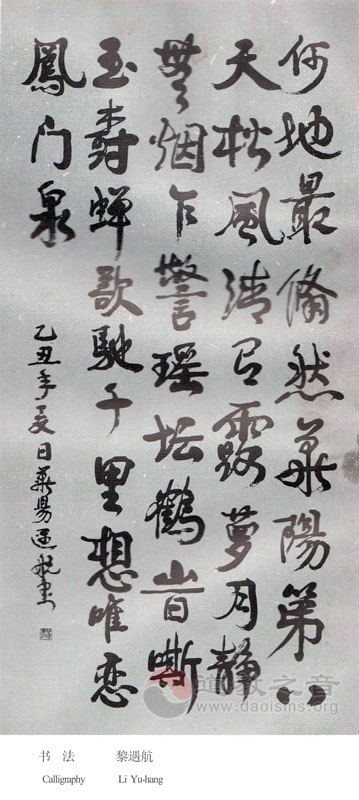 何地最翛然華陽第八
天松風清有露萝月靜
無烟乍警瑶坛鶴旹嘶
玉蝉歌馳千里想唯恋
鳳门泉
乙丑年夏日華昜遇航書
道教之音
www.daoisms.org
书 法 黎遇航
Calligraphy Li Yu-hang